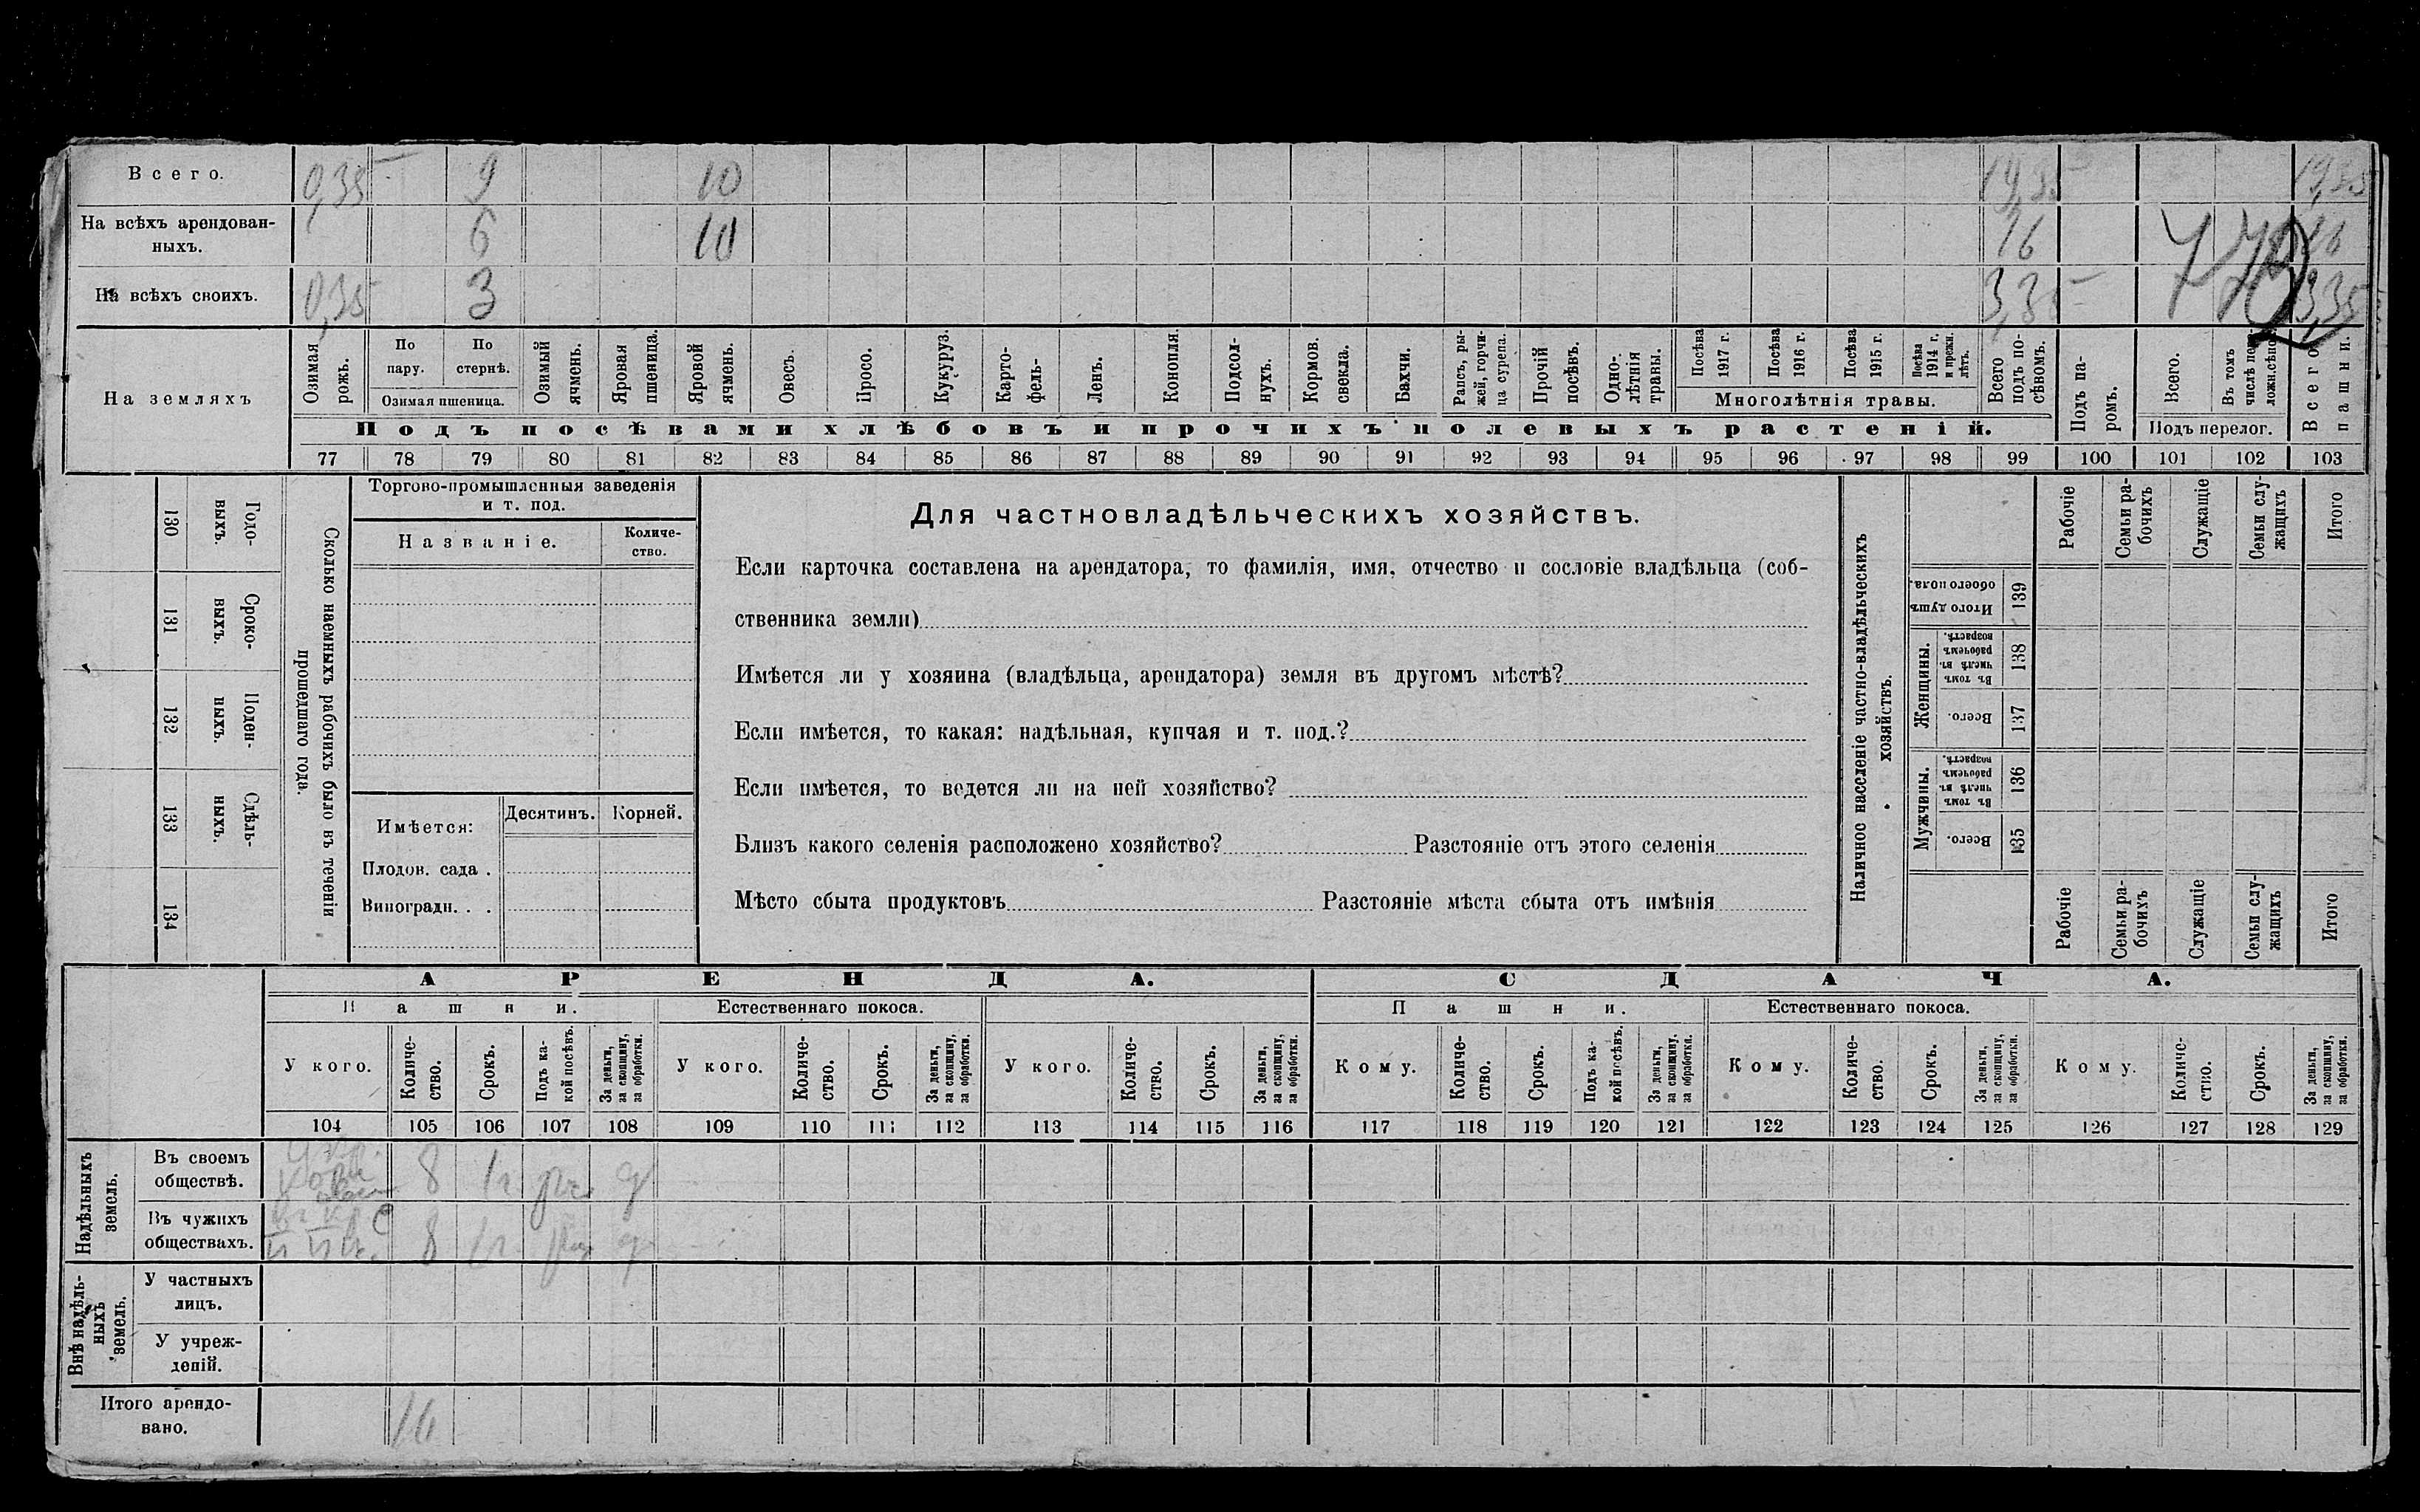 Всего. 0,35 9 10 19,35 19,35
На всѣхъ арендован-
ныхъ. 6 10 16 16
На всѣхъ своихъ. 0,35 3 3,35 3,35
На земляхъ
Озимая рожь.
По пару.
По стернѣ.
Озимая пшеница.
Озимый ячмень.
Яровая пшеница.
Яровой ячмень.
Овесъ.
Просо.
Кукуруз.
Карто-
фель-
Ленъ.
Конопля.
Подсол-
нухъ.
Кормов.
свекла.
Бахчи.
Рапсъ, ры-
жей, горчи-
ца сурепа.
Прочій
посѣвъ.
Одно-
лѣтнія
травы.
Посѣва
1917 г.
Посѣва
1916 г.
Посѣва
1915 г.
Посѣва
1914 г.
и прежн.
лѣтъ.
Многолѣтнія травы.
Всего
подъ по-
сѣвомъ.
Подъ па-
ромъ.
Всего.
Въ томъ
числѣ
Подъ перелог.
Всего
пашни.
Подъ посѣвами хлѣбовъ и прочихъ полевыхъ растеній.
77 78 79 80 81 82 83 84 85 86 87 88 89 90 91 92 93 94 95 96 97 98 99 100 101 102 103
Сколько наемныхъ рабочихъ было въ теченіи
прошедшаго года.
Годо-
выхъ.
130
Сроко-
выхъ.
131
Поден-
ныхъ.
132
Сдѣль-
ныхъ.
133
134
Торгово-промышленныя заведенія
и т. под.
Названіе.
Количе-
ство.
Имѣется:
Десятинъ. Корней.
Плодов. сада .
Виноградн. . .
Для частновладѣльческихъ хозяйствъ.
Если карточка составлена на арендатора, то фамилія, имя, отчество и сословіе владѣльца (соб-
ственника земли)
Имѣется ли у хозяина (владѣльца, арендатора) земля въ другомъ мѣстѣ?
Если имѣется, то какая: надѣльная, купчая и т. под.?
Если имѣется, то ведется ли на ней хозяйство?
Близъ какого селенія расположено хозяйство? Разстояніе отъ этого селенія
Мѣсто сбыта продуктовъ Разстояніе мѣста сбыта отъ имѣнія
Наличное населеніе частно-владѣльческихъ
хозяйствъ.
Рабочіе
Семьи ра-
бочихъ
Служащіе
Семьи слу-
жащихъ
Итого
Итого душъ
обоего пола.
139
Женщины.
Въ томъ
числѣ въ
рабочемъ
возрастѣ.
138
Всего.
137
Мужчины.
Въ томъ
числѣ въ
рабочемъ
возрастѣ.
136
Всего.
135
Рабочіе
Семьи ра-
бочихъ
Служащіе
Семьи слу-
жащихъ
Итого
АРЕНДА. СДАЧА.
Пашни. Естественнаго покоса. Пашни. Естественнаго покоса.
У кого.
Количе-
ство.
Срокъ.
Подъ ка-
кой посѣвъ.
За деньги,
за скопщину,
за обработки.
У кого.
Количе-
ство.
Срокъ.
За деньги,
за скопщину,
за обработки.
У кого.
Количе-
ство.
Срокъ.
За деньги,
за скопщину,
за обработки.
Кому.
Количе-
ство.
Срокъ.
Подъ ка-
кой посѣвъ.
За деньги,
за скопщину,
за обработки.
Кому.
Количе-
ство.
Срокъ.
За деньги,
за скопщину,
за обработки.
Кому.
Количе-
ство.
Срокъ.
За деньги,
за скопщину,
за обработки.
104 105 106 107 108 109 110 111 112 113 114 115 116 117 118 119 120 121 122 123 124 125 126 127 128 129
Надѣльныхъ
земель.
Въ своемъ
обществѣ. 8 1 г.
Въ чужихъ
обществахъ. 8 1 г.
Внѣ надѣль-
ныхъ
земель.
У частныхъ
лицъ.
У учреж-
деній.
Итого арендо-
вано. 16